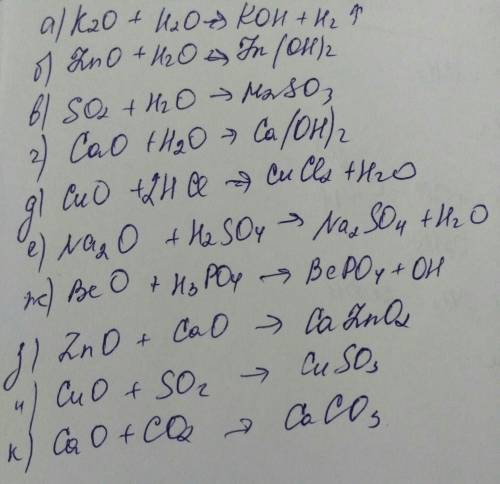 а) K2O + H2O → KOH + H2 ↑
б) ZnO + H2O → Zn(OH)2
в) SO2 + H2O → H2SO3
г) CaO + H2O → Ca(OH)2
д) CuO + 2HCl → CuCl2 + H2O
е) Na2O + H2SO4 → Na2SO4 + H2O
ж) BeO + H3PO4 → BePO4 + OH
з) ZnO + CaO → CaZnO2
и) CuO + SO2 → CuSO3
к) CaO + CO2 → CaCO3